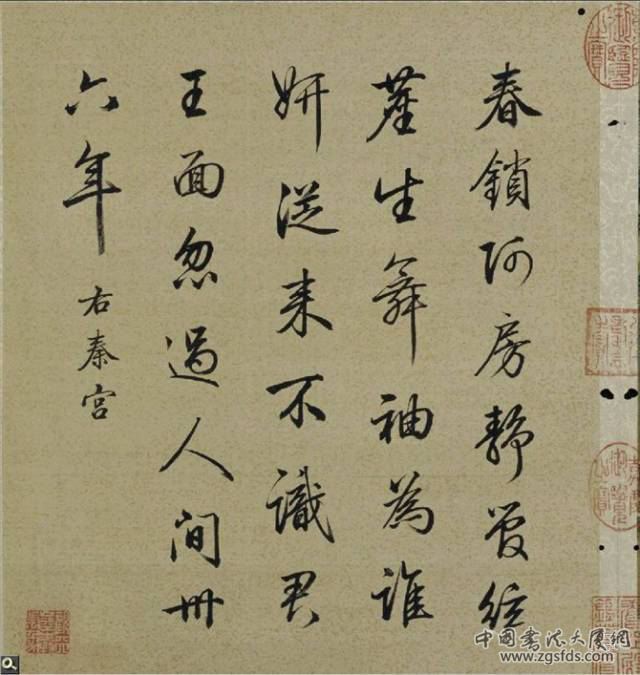 春鎖阿房靜管絃
塵生舞袖為誰
妍從来不識君
王面忽過人間卅
六年
右秦宮
中國書法大廈網
www.zgsfds.com